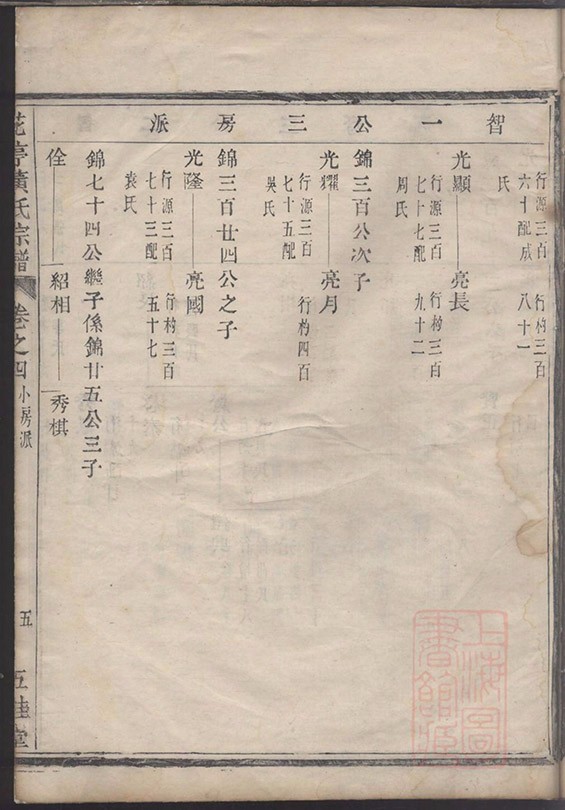 智一公三房派
行源三百 行杓三百
六十配成 八十一
氏
光顯 亮長
行源三百 行杓三百
七十七配 九十二
周氏
錦三百公次子
光耀 亮月
行源三百 行杓四百
七十五配
吳氏
錦三百廿四公之子
光隆 亮國
行源三百 行杓三百
七十三配 五十七
袁氏
錦七十四公繼子係錦廿五公三子
佺 紹相 秀棋
花亭黃氏宗譜 卷之四 小房派 五 五桂堂
上海圖書館藏